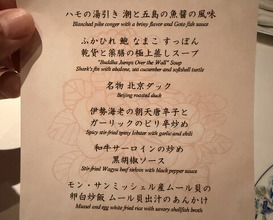 ハモの湯引き 潮と五島の魚醤の風味
Blanched pike conger with a briny flavor and Goto fish sauce
ふかひれ 鮑 なまこ すっぽん
乾貨と薬膳の極上蒸しスープ
"Buddha Jumps Over the Wall" Soup
Shark's fin with abalone, sea cucumber and softshell turtle
名物 北京ダック
Beijing roasted duck
伊勢海老の朝天唐辛子と
ガーリックのピリ辛炒め
Spicy stir-fried spiny lobster with garlic and chili
和牛サーロインの炒め
黒胡椒ソース
Stir-fried Wagyu beef sirloin with black pepper sauce
モン・サンミッシェル産ムール貝の
卵白炒飯 ムール貝出汁のあんかけ
Mussel and egg white fried rice with savory shellfish broth